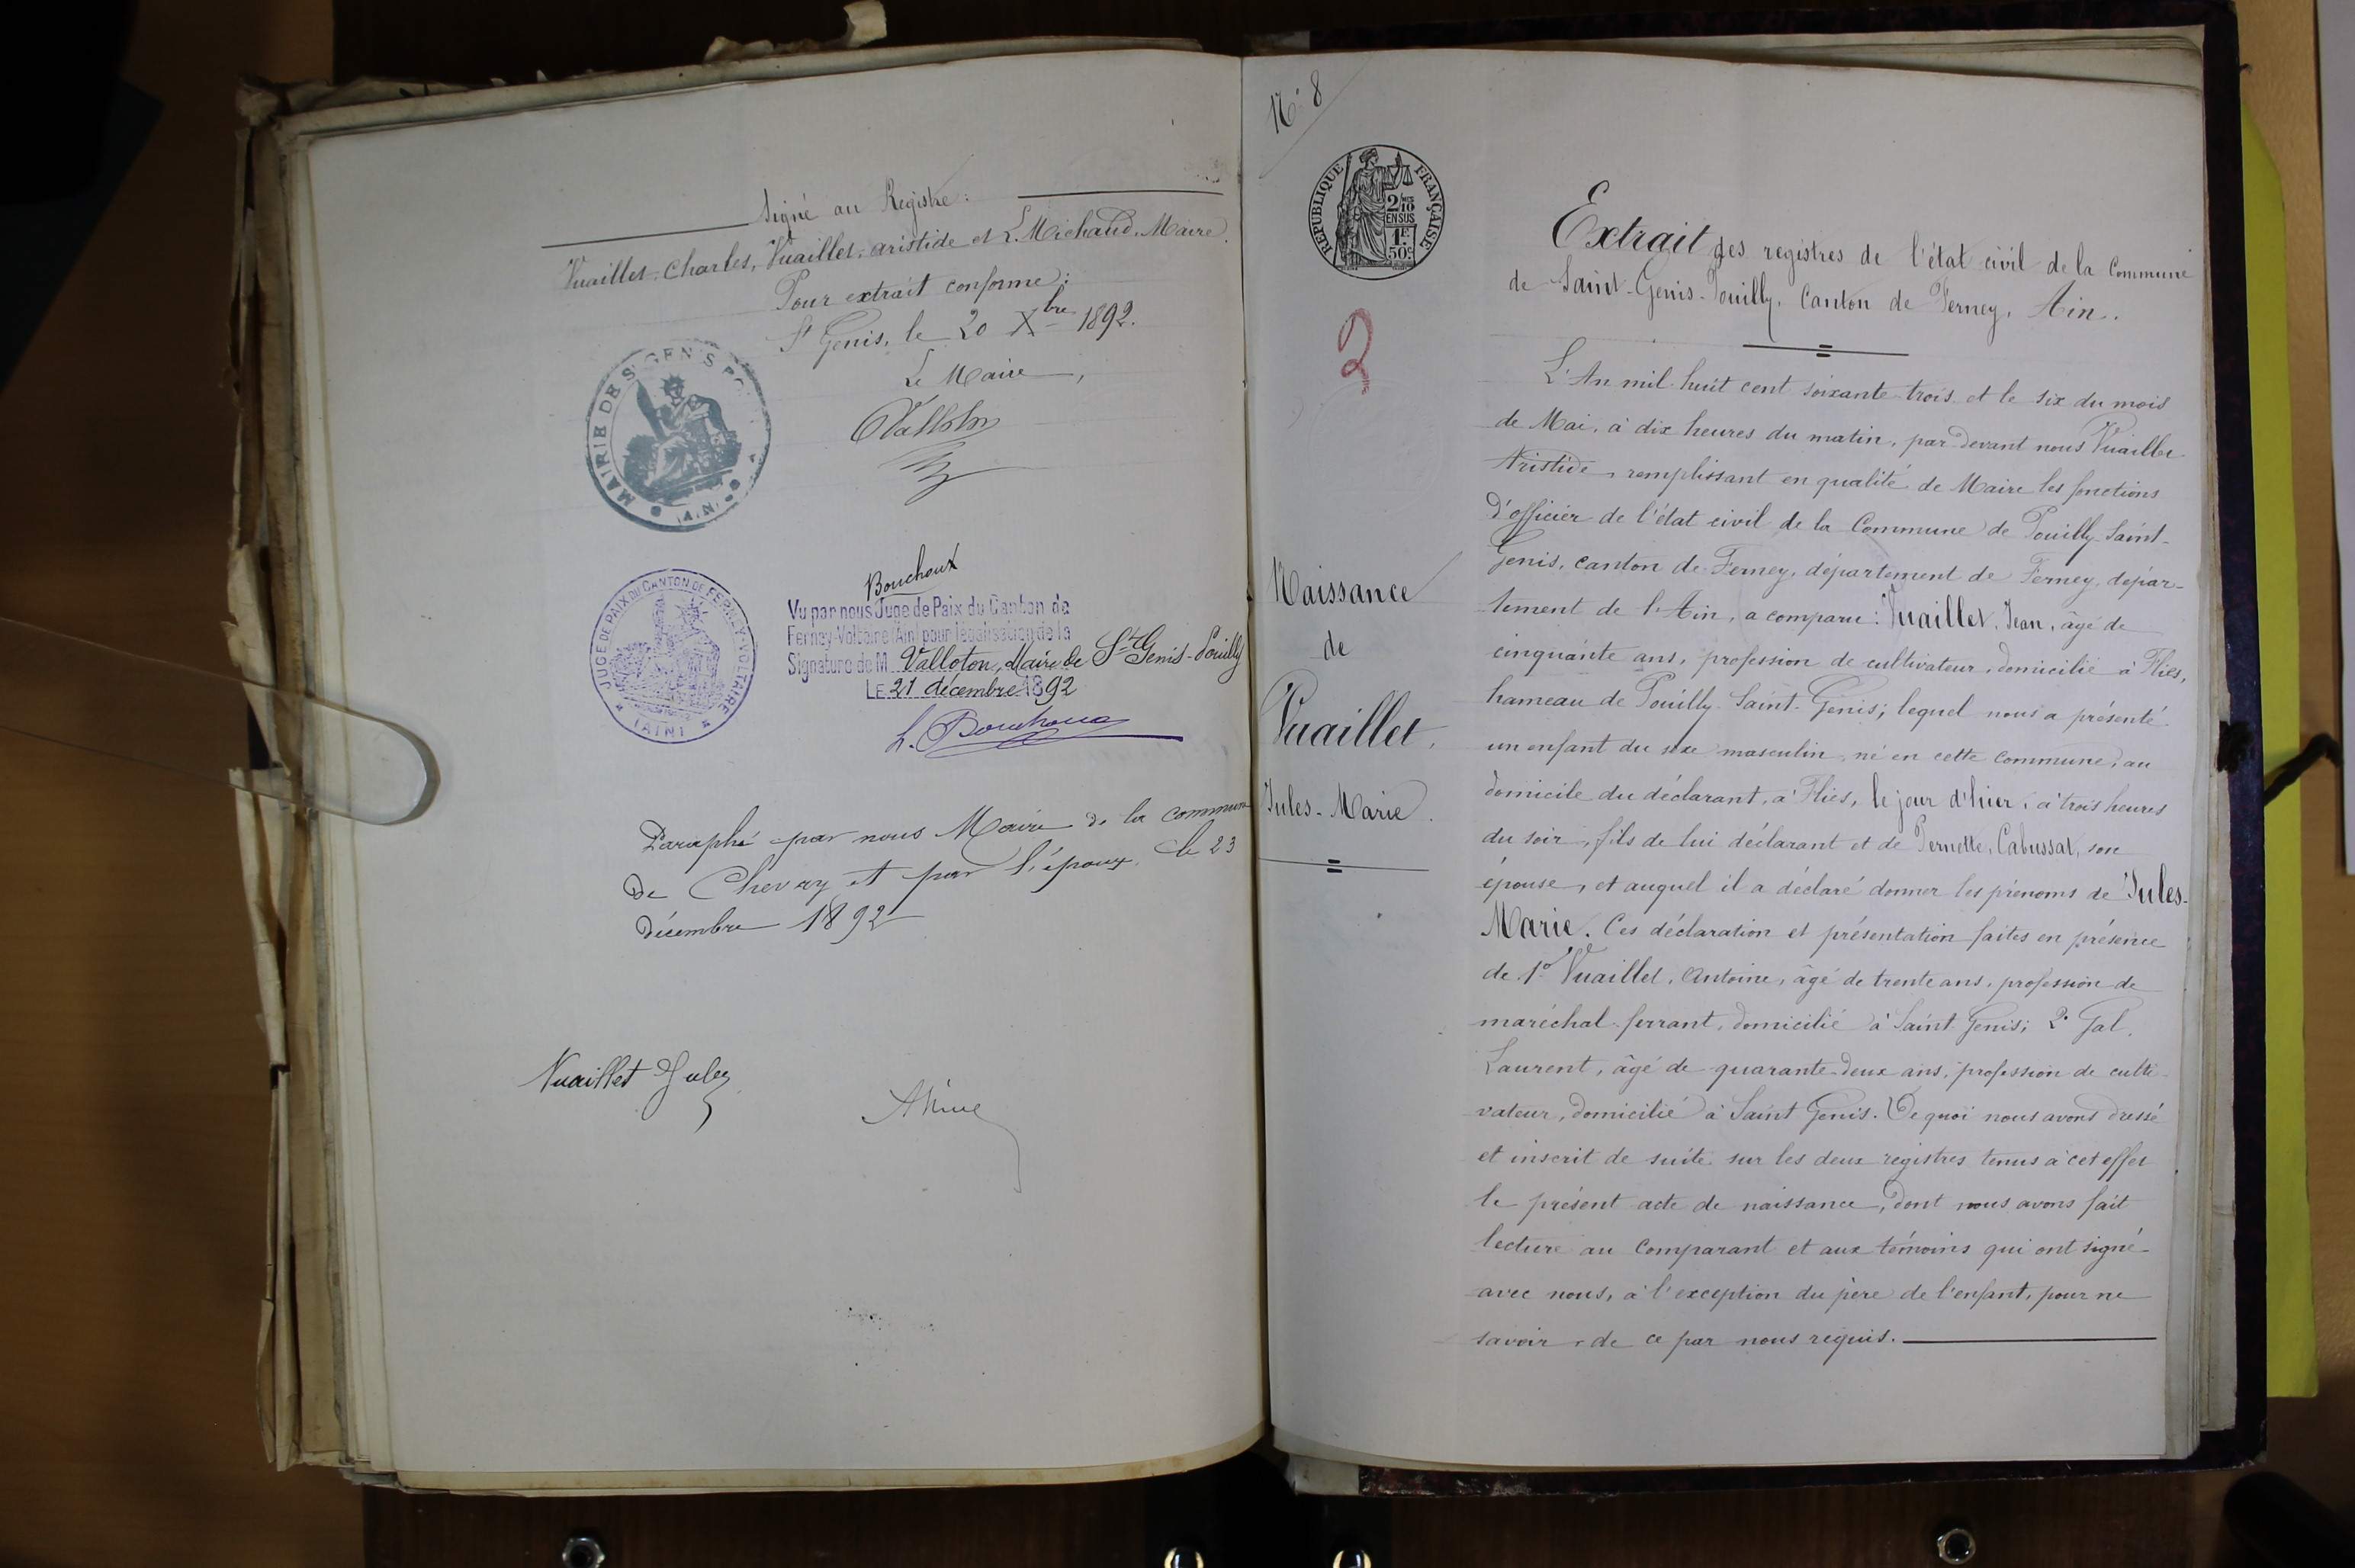 Signé au Registre:
Vuaillet. Charles, Vuaillet. aristide et L. Michaud. Maire.
Pour extrait conforme:
St Genis, le 20 Xbre 1892.
Le Maire,
Valloton
MAIRIE DE ST GENIS PO
(AIN)
JUGE DE PAIX DU CANTON DE FERNEY-VOLTAIRE
(AIN)
Bouchoux
Vu par nous Juge de Paix du Canton de
Ferney-Voltaire (Ain) pour légalisation de la
Signature de M. Valloton, Maire de St Genis-Pouilly
LE 21 décembre 1892
L. Bouchoux
Paraphé par nous Maire de la commune
de Chevry et par l'époux. le 23
décembre 1892
Vuaillet Jules
No 8
RÉPUBLIQUE FRANÇAISE
2/10
EN SUS
1F
50c
2
Extrait des registres de l'état civil de la Commune
de Saint-Genis-Pouilly, Canton de Ferney, Ain.
L'An mil huit cent soixante-trois et le six du mois
de Mai, à dix heures du matin, par devant nous Vuaillet
Aristide, remplissant en qualité de Maire les fonctions
d'officier de l'état civil de la Commune de Pouilly-Saint-
Genis, canton de Ferney, département de Ferney, dépar-
tement de l'Ain, a comparu: Vuaillet, Jean, âgé de
cinquante ans, profession de cultivateur, domicilié à Flies,
hameau de Pouilly-Saint-Genis; lequel nous a présenté
un enfant du sexe masculin, né en cette commune, au
domicile du déclarant, à Flies, le jour d'hier, à trois heures
du soir, fils de lui déclarant et de Pernette, Cabussat, son
épouse, et auquel il a déclaré donner les prénoms de Jules-
Marie. Ces déclaration et présentation faites en présence
de 1o Vuaillet, Antoine, âgé de trente ans, profession de
maréchal-ferrant, domicilié à Saint Genis; 2o Gal,
Laurent, âgé de quarante-deux ans, profession de culti-
vateur, domicilié à Saint Genis. De quoi nous avons dressé
et inscrit de suite sur les deux registres tenus à cet effet
le présent acte de naissance, dont nous avons fait
lecture au Comparant et aux témoins qui ont signé
avec nous, à l'exception du père de l'enfant, pour ne
savoir, de ce par nous requis.
Naissance
de
Vuaillet,
Jules-Marie.